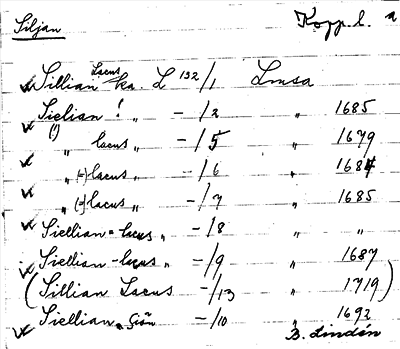 Siljan Kopp. l. a
Sillian Lacus ka. L 132/1 Lmsa
Sielian ! „ -/2 „ 1685
(!) „ lacus „ -/5 „ 1679
„ (-) lacus „ -/6 „ 1684
„ (-) lacus „ -/7 „ 1685
Siellian - lacus „ -/8 „ „
Siellian - lacus „ -/9 „ 1687
(Sillian Lacus -/13 „ 1719)
Siellian „ Giön -/10 „ 1692
B. Lindén